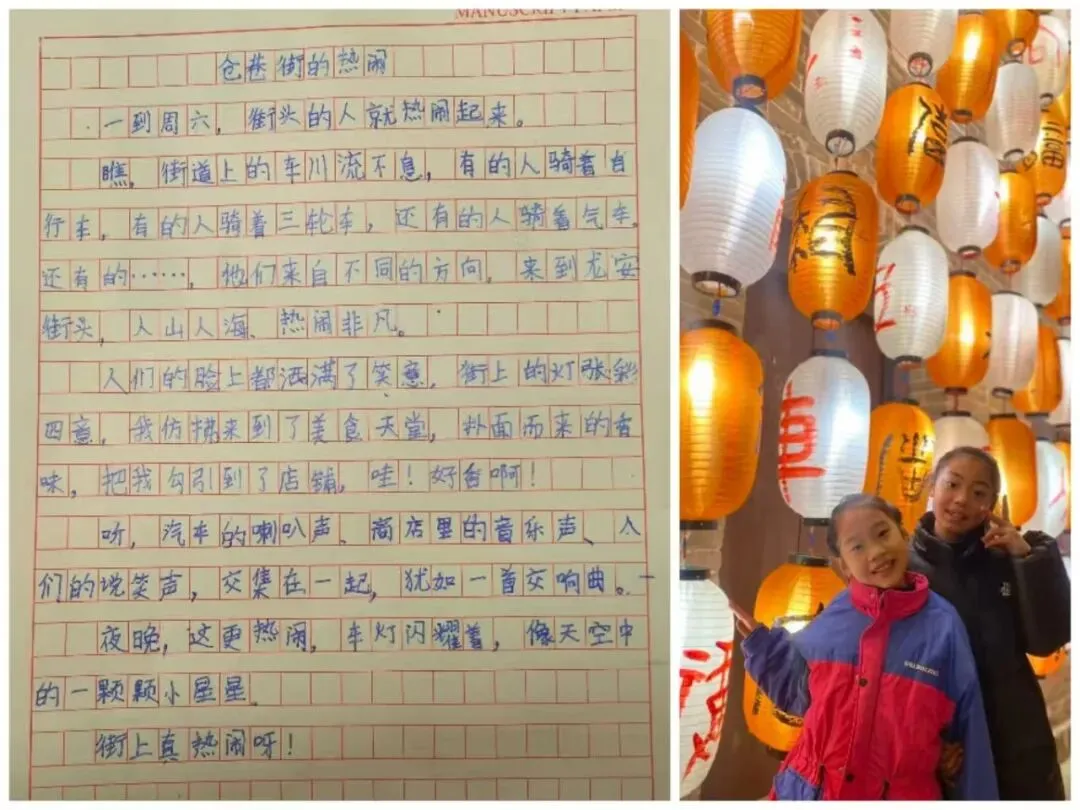 MANUSCRIPT
仓巷街的热闹
一到周六，街头的人就热闹起来。
瞧，街道上的车川流不息，有的人骑着自
行车，有的人骑着三轮车，还有的人骑着气车。
还有的……，他们来自不同的方向，来到龙安
街头，人山人海、热闹非凡。
人们的脸上都洒满了笑意，街上的灯张彩
四意，我仿拂来到了美食天堂，扑面而来的香
味，把我勾引到了店铺，哇！好香啊！
听，汽车的喇叭声、商店里的音乐声、人
们的说笑声，交集在一起，犹如一首交响曲。
夜晚，这更热闹，车灯闪耀着，像天空中
的一颗颗小星星。
街上真热闹呀！